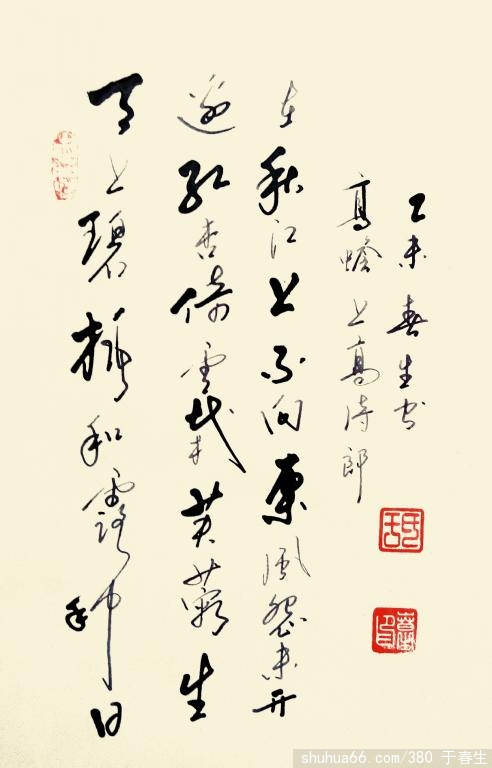 天上碧桃和露种日
邊紅杏倚雲栽芙蓉生
在秋江上不向東風怨未开
高蟾上高侍郎
乙未春生书
shuhua66.com/380 于春生